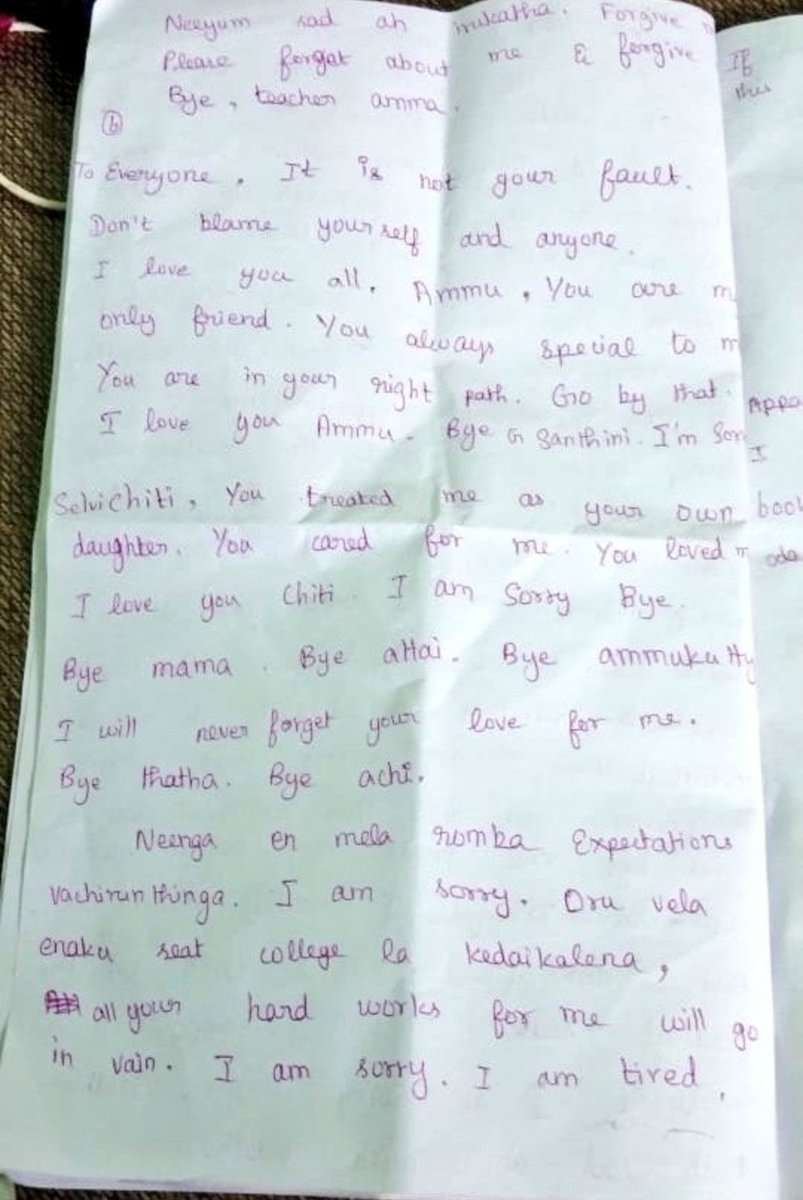 Neeyum sad ah irukatha. Forgive
Please forget about me & forgive
Bye, teacher amma.
6
To Everyone. It is not your fault.
Don't blame yourself and anyone.
I love you all. Ammu, You are m
only friend. You always special to m
You are in your right path. Go by that.
I love you Ammu. Bye G Santhini. I'm Sor
Selvi Chiti, You treated me as your own
daughter. You cared for me. You loved m
I love you Chiti. I am Sorry Bye.
Bye mama. Bye attai. Bye ammukutty
I will never forget your love for me.
Bye thatha. Bye achi.
Neenga en mela romba Expectations
vachirunthinga. I am sorry. Oru vela
enaku seat college la kedaikalena,
all your hard works for me will go
in vain. I am sorry. I am tired.
If
this
Appa
I